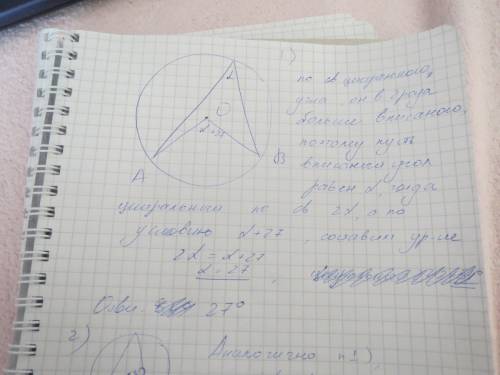 1)
по св центрального
угла он в 2 раза
больше вписаного,
потому пусть
вписаный угол
равен α, тогда
центральный по св 2α, а по
условию α+27, составим ур-ие
2α = α+27
α = 27
Отв. 27°
2)
Аналогично п1),
α
O
A
B